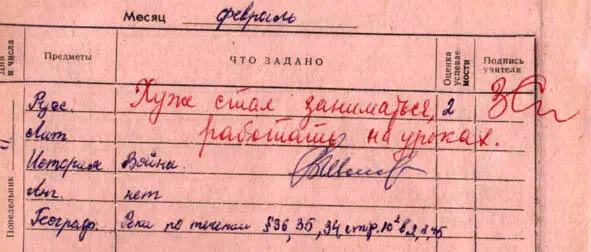 Месяц февраль
Дни и числа Предметы ЧТО ЗАДАНО Оценка успеваемости Подпись учителя
Понедельник
Русс. Хуже стал заниматься, 2
Лит. работать на уроках.
История Войны.
Анг. нет
Географ. Реки по течении § 36, 35, 34, стр.